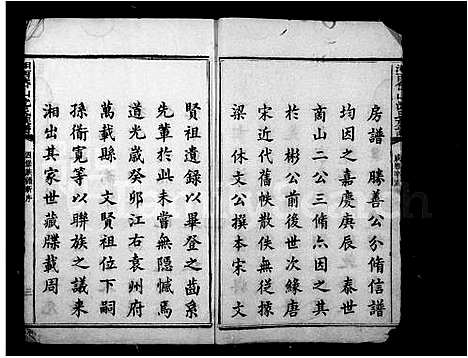 房譜 勝善公分脩信譜
均因之嘉慶庚辰 泰世
啇山二公三脩亦因之其
於 彬公前後世次緣唐
宋近代舊帙散佚無從據
梁 休文公撰本宋 文
賢祖遺録以畢登之齒系
先軰於此未嘗無隱憾焉
道光歲癸卯江右袁州府
萬載縣 文賢祖位下嗣
孫衡寛等以聯族之議来
湘出其家世藏牒載周